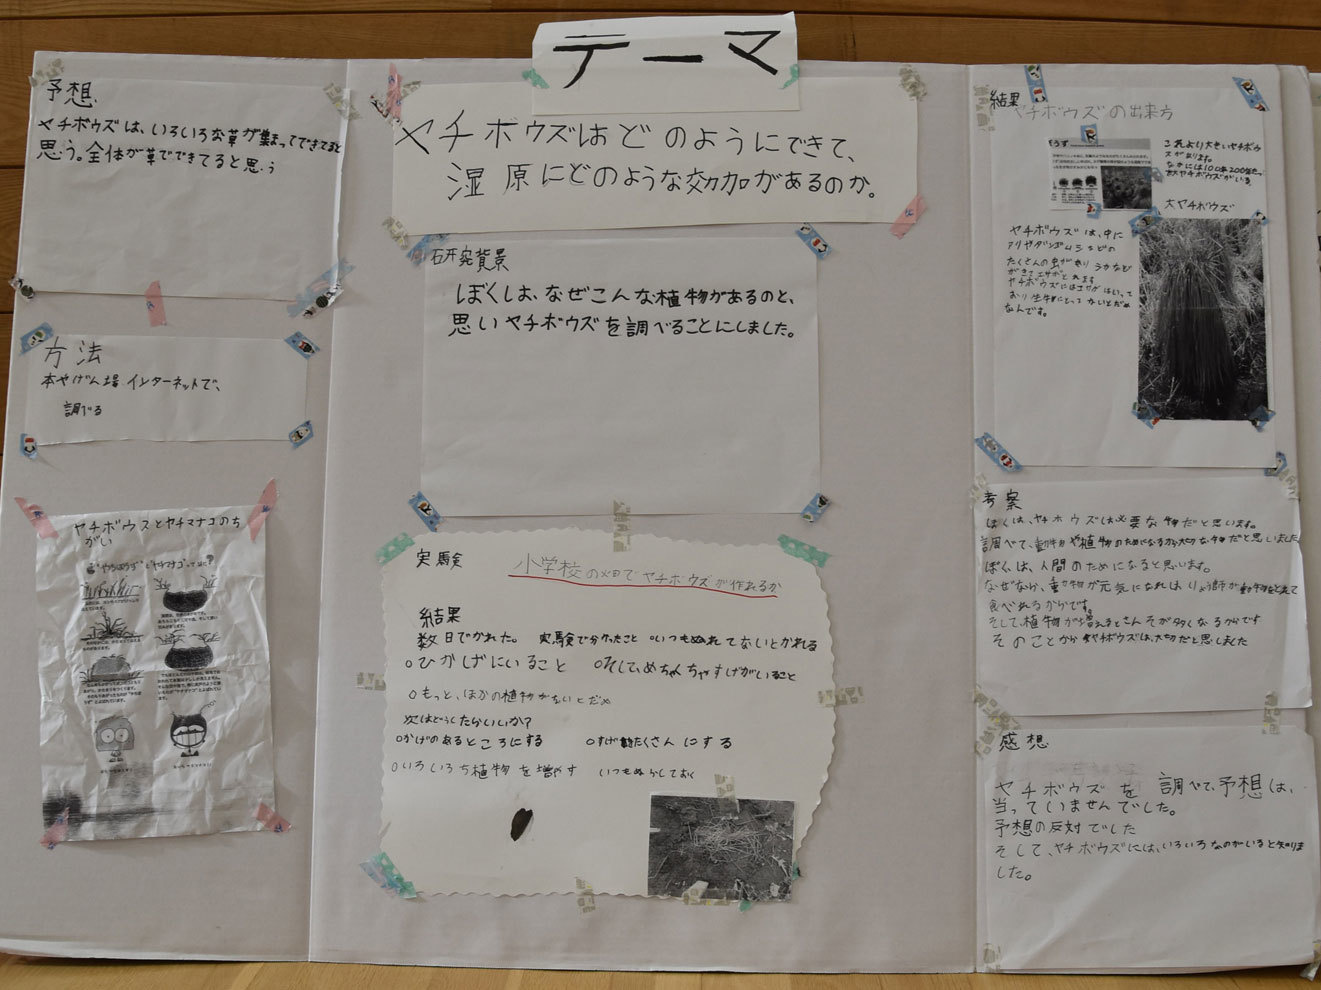 テーマ
ヤチボウズはどのようにできて、
湿原にどのような効加があるのか。
予想
ヤチボウズは、いろいろな草が集まってできてると
思う。全体が草でできてると思う
方法
本やげん場インターネットで、
調べる
ヤチボウズとヤチマナコのち
がい
"やちぼうず"と"ヤチマナコ"ってなに?
研究背景
ぼくしは、なぜこんな植物があるのと、
思いヤチボウズを調べることにしました。
実験
小学校の畑でヤチボウズが作れるか
結果
数日でかれた。 実験で分かったこと ○いつもぬれてないとかれる
○ひかげにいること ○そして、めちゃくちゃすげがいること
○もっと、ほかの植物がないとだめ
次はどうしたらいいか?
○かげのあるところにする ○すげをたくさんにする
○いろいろち植物を増やす いつもぬらしておく
結果
ヤチボウズの出来方
これより大きいヤチボウ
ズがあります。
なかには100年200年たっ
大ヤチボウズ
ヤチボウズは、中に
アリやダンゴムシなどの
たくさんの虫が
ヤチボウズには
なんです。
考案
ぼくは、ヤチボウズは必要な物だと思います。
調べて、動物や植物のためになるから大切な物だと思いました
ぼくは、人間のためになると思います。
なぜなら、動物が元気になればりょう師が動物をとれて
食べれるからです。
そして植物が増えるとさんそが多くなるからです
そのことからヤチボウズは、大切だと思しました
感想
ヤチボウズを調べて、予想は、
当っていませんでした。
予想の反対でした
そして、ヤチボウズには、いろいろなのがいると知りま
した。